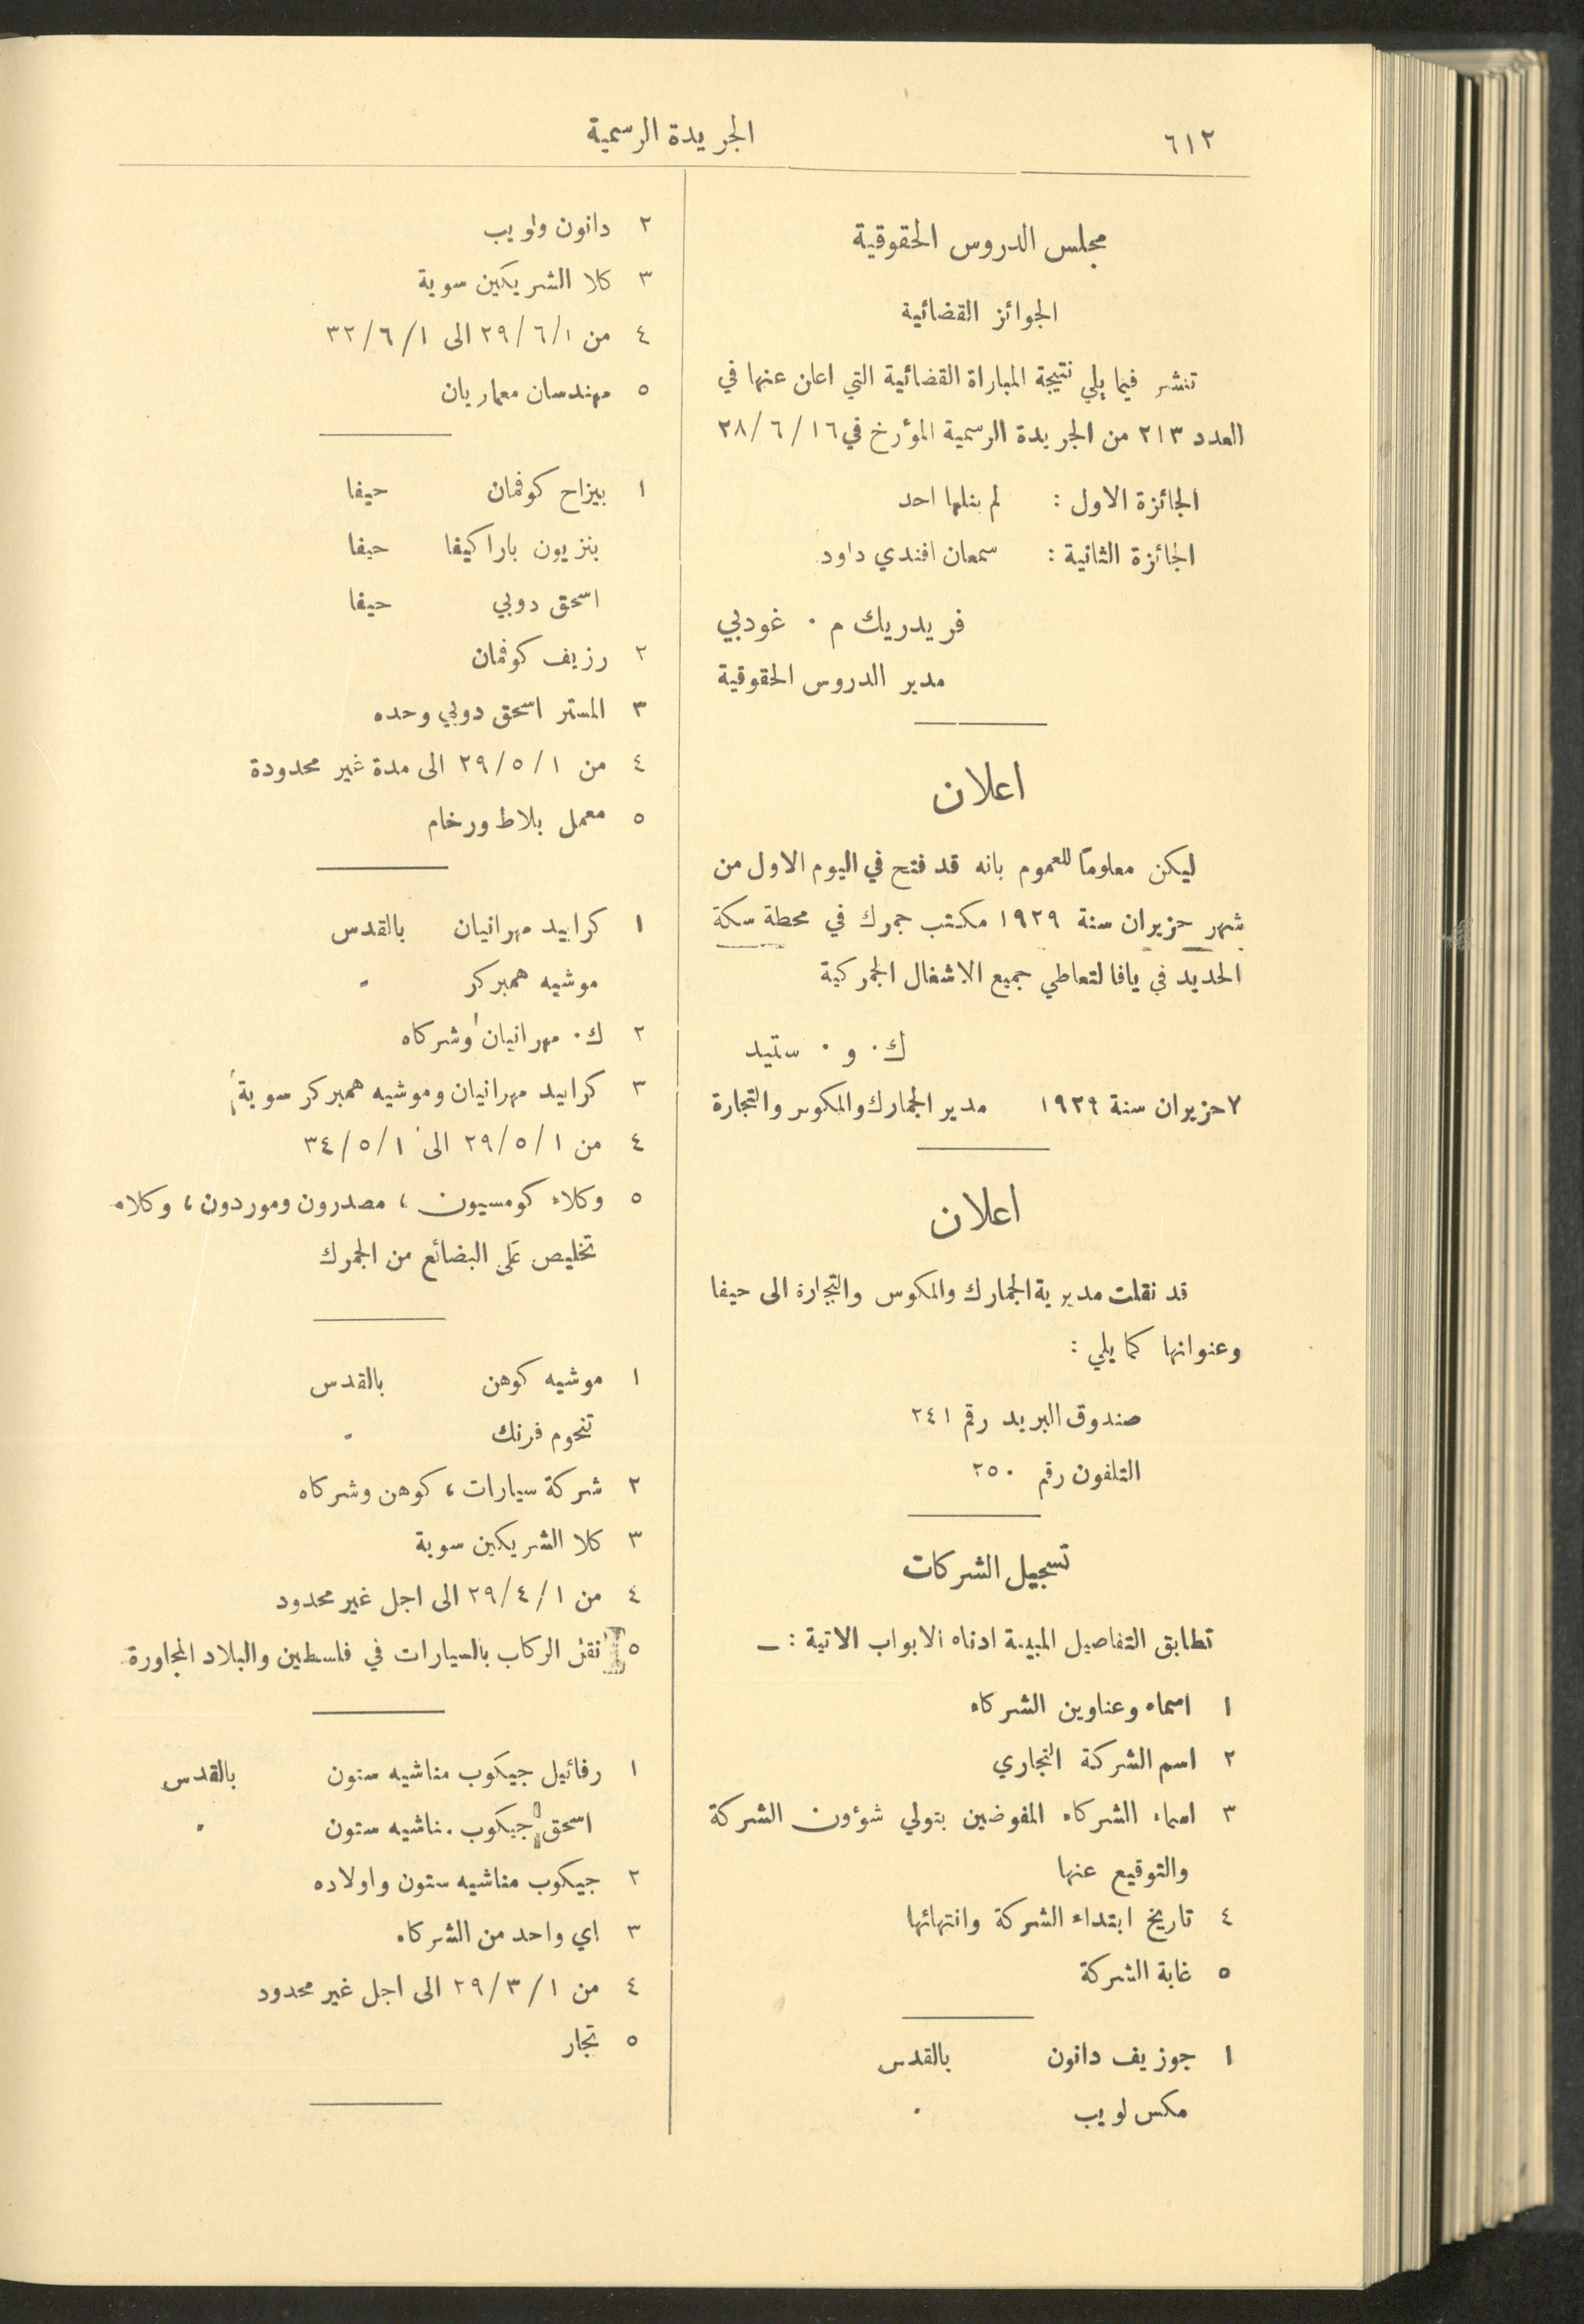 ٦١٢
الجريدة الرسمية
مجلس الدروس الحقوقية
الجوائز القضائية
تنشر فيما يلي نتيجة المباراة القضائية التي اعلن عنها في
العدد ٢١٣ من الجريدة الرسمية المؤرخ في ١٦/ ٦/ ٢٨
الجائزة الاول : لم ينلها احد
الجائزة الثانية : سمعان افندي داود
فريدريك م . غودبي
مدير الدروس الحقوقية
اعلان
ليكن معلوماً للعموم بانه قد فتح في اليوم الاول من
شهر حزيران سنة ١٩٢٩ مكتب جمرك في محطة سكة
الحديد في يافا لتعاطي جميع الاشغال الجمركية
ك . و . ستيد
٧ حزيران سنة ١٩٢٩ مدير الجمارك والمكوس والتجارة
اعلان
قد نقلت مديرية الجمارك والمكوس والتجارة الى حيفا
وعنوانها كما يلي :
صندوق البريد رقم ٢٤١
التلفون رقم ٢٥٠
تسجيل الشركات
تطابق التفاصيل المبينة ادناه الابواب الاتية : ـ
١ اسماء وعناوين الشركاء
٢ اسم الشركة التجاري
٣ اسماء الشركاء المفوضين بتولي شؤون الشركة
والتوقيع عنها
٤ تاريخ ابتداء الشركة وانتهائها
٥ غاية الشركة
١ جوزيف دانون بالقدس
مكس لويب "
٢ دانون ولويب
٣ كلا الشريكين سوية
٤ من ١/ ٦/ ٢٩ الى ١/ ٦/ ٣٢
٥ مهندسان معماريان
١ بيزاح كوفمان حيفا
بنزيون باراكيفا حيفا
اسحق دوبي حيفا
٢ رزيف كوفمان
٣ المستر اسحق دوبي وحده
٤ من ١/ ٥/ ٢٩ الى مدة غير محدودة
٥ معمل بلاط ورخام
١ كرابيد مهرانيان بالقدس
موشيه همبركر "
٢ ك . مهرانيان وشركاه
٣ كرابيد مهرانيان وموشيه همبركر سوية
٤ من ١/ ٥/ ٢٩ الى ١/ ٥/ ٣٤
٥ وكلاء كومسيون ، مصدرون وموردون ، وكلاء
تخليص على البضائع من الجمرك
١ موشيه كوهن بالقدس
تنحوم فرنك "
٢ شركة سيارات ، كوهن وشركاه
٣ كلا الشريكين سوية
٤ من ١/ ٤/ ٢٩ الى اجل غير محدود
٥ نقل الركاب بالسيارات في فلسطين والبلاد المجاورة
١ رفائيل جيكوب مناشيه ستون بالقدس
اسحق جيكوب مناشيه ستون "
٢ جيكوب مناشيه ستون واولاده
٣ اي واحد من الشركاء
٤ من ١/ ٣/ ٢٩ الى اجل غير محدود
٥ تجار